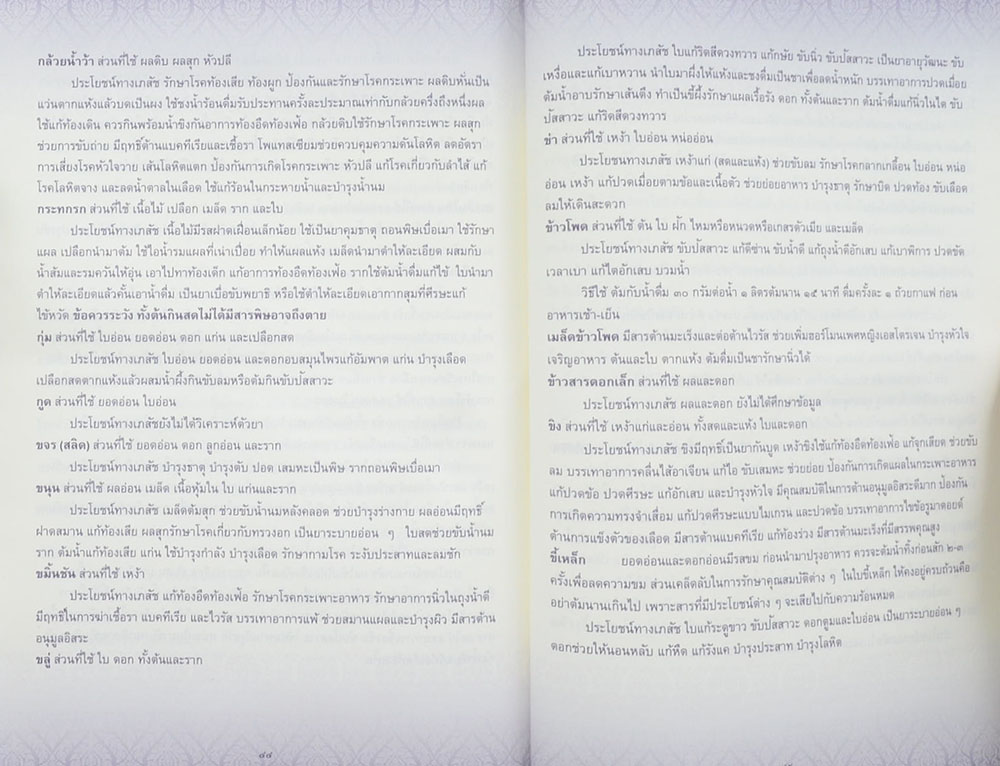 กล้วยน้ำว้า ส่วนที่ใช้ ผลดิบ ผลสุก หัวปลี
ประโยชน์ทางเภสัช รักษาโรคท้องเสีย ท้องผูก ป้องกันและรักษาโรคกระเพาะ ผลดิบหั่นเป็น
แว่นตากแห้งแล้วบดเป็นผง ใช้ชงน้ำร้อนดื่มรับประทานครั้งละประมาณเท่ากับกล้วยครึ่งถึงหนึ่งผล
ใช้แก้ท้องเดิน ควรกินพร้อมน้ำขิงกันอาการท้องอืดท้องเฟ้อ กล้วยดิบใช้รักษาโรคกระเพาะ ผลสุก
ช่วยการขับถ่าย มีฤทธิ์ต้านแบคทีเรียและเชื้อรา โพแทสเซียมช่วยควบคุมความดันโลหิต ลดอัตรา
การเสี่ยงโรคหัวใจวาย เส้นโลหิตแตก ป้องกันการเกิดโรคกระเพาะ หัวปลี แก้โรคเกี่ยวกับลำไส้ แก้
โรคโลหิตจาง และลดน้ำตาลในเลือด ใช้แก้ร้อนในกระหายน้ำและบำรุงน้ำนม
กระทกรก ส่วนที่ใช้ เนื้อไม้ เปลือก เมล็ด ราก และใบ
ประโยชน์ทางเภสัช เนื้อไม้มีรสฝาดเฝื่อนเล็กน้อย ใช้เป็นยาคุมธาตุ ถอนพิษเบื่อเมา ใช้รักษา
แผล เปลือกนำมาต้ม ใช้ไอน้ำรมแผลที่เน่าเปื่อย ทำให้แผลแห้ง เมล็ดนำมาตำให้ละเอียด ผสมกับ
น้ำส้มและรมควันให้อุ่น เอาไปทาท้องเด็ก แก้อาการท้องอืดท้องเฟ้อ รากใช้ต้มน้ำดื่มแก้ไข้ ใบนำมา
ตำให้ละเอียดแล้วคั้นเอาน้ำดื่ม เป็นยาเบื่อขับพยาธิ หรือใช้ตำให้ละเอียดเอากากสุมที่ศีรษะแก้
ไข้หวัด ข้อควรระวัง ทั้งต้นกินสดไม่ได้มีสารพิษอาจถึงตาย
กุ่ม ส่วนที่ใช้ ใบอ่อน ยอดอ่อน ดอก แก่น และเปลือกสด
ประโยชน์ทางเภสัช ใบอ่อน ยอดอ่อน และดอกอบสมุนไพรแก้อัมพาต แก่น บำรุงเลือด
เปลือกสดตากแห้งแล้วผสมน้ำผึ้งกินขับลมหรือต้มกินขับปัสสาวะ
กูด ส่วนที่ใช้ ยอดอ่อน ใบอ่อน
ประโยชน์ทางเภสัชยังไม่ได้วิเคราะห์ตัวยา
ขจร (สลิด) ส่วนที่ใช้ ยอดอ่อน ดอก ลูกอ่อน และราก
ประโยชน์ทางเภสัช บำรุงธาตุ บำรุงตับ ปอด เสมหะเป็นพิษ รากถอนพิษเบื่อเมา
ขนุน ส่วนที่ใช้ ผลอ่อน เมล็ด เนื้อหุ้มใน ใบ แก่นและราก
ประโยชน์ทางเภสัช เมล็ดต้มสุก ช่วยขับน้ำนมหลังคลอด ช่วยบำรุงร่างกาย ผลอ่อนมีฤทธิ์
ฝาดสมาน แก้ท้องเสีย ผลสุกรักษาโรคเกี่ยวกับทรวงอก เป็นยาระบายอ่อน ๆ ใบสดช่วยขับน้ำนม
ราก ต้มน้ำแก้ท้องเสีย แก่น ใช้บำรุงกำลัง บำรุงเลือด รักษากามโรค ระงับประสาทและลมชัก
ขมิ้นชัน ส่วนที่ใช้ เหง้า
ประโยชน์ทางเภสัช แก้ท้องอืดท้องเฟ้อ รักษาโรคกระเพาะอาหาร รักษาอาการนิ่วในถุงน้ำดี
มีฤทธิ์ในการฆ่าเชื้อรา แบคทีเรีย และไวรัส บรรเทาอาการแพ้ ช่วยสมานแผลและบำรุงผิว มีสารต้าน
อนุมูลอิสระ
ขลู่ ส่วนที่ใช้ ใบ ดอก ทั้งต้นและราก
๔๔
ประโยชน์ทางเภสัช ใบแก้ริดสีดวงทวาร แก้กษัย ขับนิ่ว ขับปัสสาวะ เป็นยาอายุวัฒนะ ขับ
เหงื่อและแก้เบาหวาน นำใบมาผึ่งให้แห้งและชงดื่มเป็นชาเพื่อลดน้ำหนัก บรรเทาอาการปวดเมื่อย
ต้มน้ำอาบรักษาเส้นตึง ทำเป็นขี้ผึ้งรักษาแผลเรื้อรัง ดอก ทั้งต้นและราก ต้มน้ำดื่มแก้นิ่วในไต ขับ
ปัสสาวะ แก้ริดสีดวงทวาร
ข่า ส่วนที่ใช้ เหง้า ใบอ่อน หน่ออ่อน
ประโยชนทางเภสัช เหง้าแก่ (สดและแห้ง) ช่วยขับลม รักษาโรคกลากเกลื้อน ใบอ่อน หน่อ
อ่อน เหง้า แก้ปวดเมื่อยตามข้อและเนื้อตัว ช่วยย่อยอาหาร บำรุงธาตุ รักษาบิด ปวดท้อง ขับเลือด
ลมให้เดินสะดวก
ข้าวโพด ส่วนที่ใช้ ต้น ใบ ฝัก ไหมหรือหนวดหรือเกสรตัวเมีย และเมล็ด
ประโยชน์ทางเภสัช ขับปัสสาวะ แก้ดีซ่าน ขับน้ำดี แก้ถุงน้ำดีอักเสบ แก้เบาพิการ ปวดขัด
เวลาเบา แก้ไตอักเสบ บวมน้ำ
วิธีใช้ ต้มกับน้ำดื่ม ๓๐ กรัมต่อน้ำ ๑ ลิตรต้มนาน ๑๕ นาที ดื่มครั้งละ ๑ ถ้วยกาแฟ ก่อน
อาหารเช้า-เย็น
เมล็ดข้าวโพด มีสารต้านมะเร็งและต่อต้านไวรัส ช่วยเพิ่มฮอร์โมนเพศหญิงเอสโตรเจน บำรุงหัวใจ
เจริญอาหาร ต้นและใบ ตากแห้ง ต้มดื่มเป็นชารักษานิ่วได้
ข้าวสารดอกเล็ก ส่วนที่ใช้ ผลและดอก
ประโยชน์ทางเภสัช ผลและดอก ยังไม่ได้ศึกษาข้อมูล
ขิง ส่วนที่ใช้ เหง้าแก่และอ่อน ทั้งสดและแห้ง ใบและดอก
ประโยชน์ทางเภสัช ขิงมีฤทธิ์เป็นยากันบูด เหง้าขิงใช้แก้ท้องอืดท้องเฟ้อ แก้จุกเสียด ช่วยขับ
ลม บรรเทาอาการคลื่นไส้อาเจียน แก้ไอ ขับเสมหะ ช่วยย่อย ป้องกันการเกิดแผลในกระเพาะอาหาร
แก้ปวดข้อ ปวดศีรษะ แก้อักเสบ และบำรุงหัวใจ มีคุณสมบัติในการต้านอนุมูลอิสระดีมาก ป้องกัน
การเกิดความทรงจำเสื่อม แก้ปวดศีรษะแบบไมเกรน และปวดข้อ บรรเทาอาการไขข้อรูมาตอยด์
ต้านการแข็งตัวของเลือด มีสารต้านแบคทีเรีย แก้ท้องร่วง มีสารต้านมะเร็งที่มีสรรพคุณสูง
ขี้เหล็ก ยอดอ่อนและดอกอ่อนมีรสขม ก่อนนำมาปรุงอาหาร ควรจะต้มน้ำทิ้งก่อนสัก ๒-๓
ครั้งเพื่อลดความขม ส่วนเคล็ดลับในการรักษาคุณสมบัติต่าง ๆ ในใบขี้เหล็ก ให้คงอยู่ครบถ้วนคือ
อย่าต้มนานเกินไป เพราะสารที่มีประโยชน์ต่าง ๆ จะเสียไปกับความร้อนหมด
ประโยชน์ทางเภสัช ใบแก้ระดูขาว ขับปัสสาวะ ดอกตูมและใบอ่อน เป็นยาระบายอ่อน ๆ
ดอกช่วยให้นอนหลับ แก้หืด แก้รังแค บำรุงประสาท บำรุงโลหิต